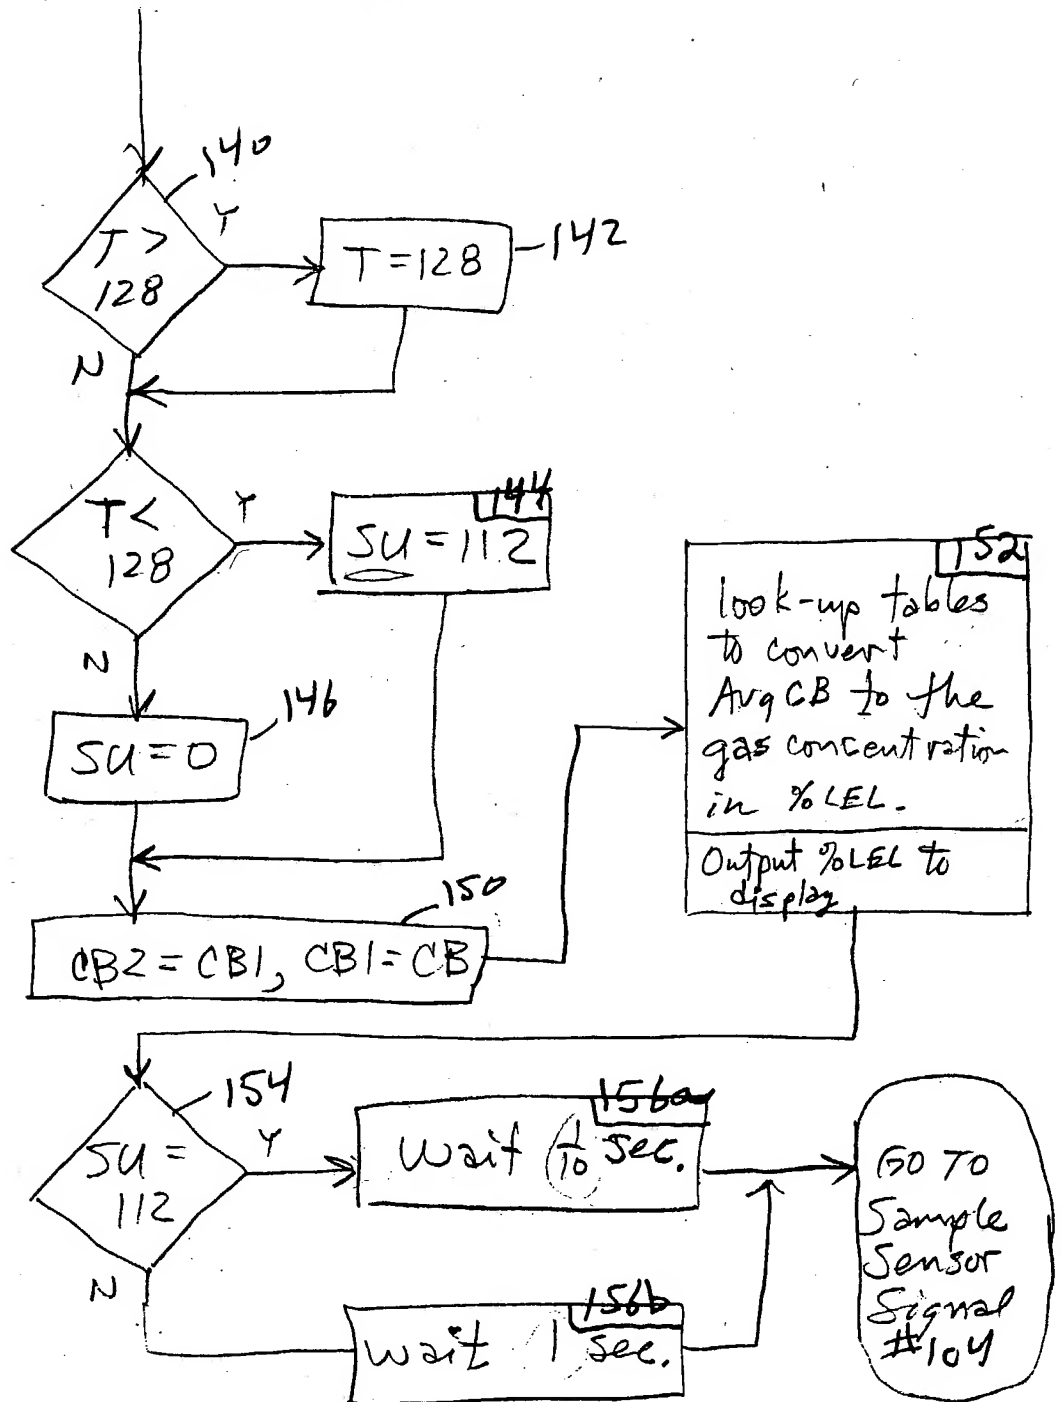 140
T >
128
Y
T = 128
142
N
T <
128
Y
144
SU = 112
N
146
SU = 0
150
CB2 = CB1, CB1 = CB
152
look-up tables
to convert
Avg CB to the
gas concentration
in % LEL.
Output % LEL to
display
154
SU =
112
Y
156a
Wait 1/10 sec.
N
156b
Wait 1 sec.
GO TO
Sample
Sensor
Signal
#104